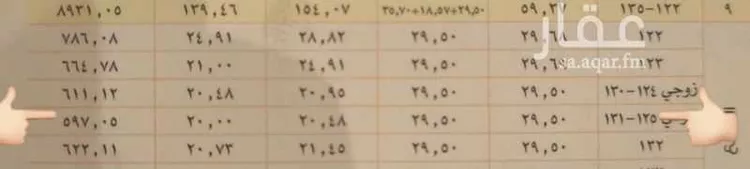 ٩ ١٢٢-١٣٥ ٥٩,٣٧ ٢٥,٧٠+١٨,٥٧+٢٩,٥٠ ١٥٤,٠٧ ١٣٩,٤٦ ٨٩٣١,٠٥
عقار
١٢٢ ٢٩,٦٨ ٢٩,٥٠ ٢٨,٨٢ ٢٤,٩١ ٧٨٦,٠٨
sa.aqar.fm
١٢٣ ٢٩,٦٨ ٢٩,٥٠ ٢٤,٩١ ٢١,٠٠ ٦٦٤,٧٨
زوجي ١٢٤-١٣٠ ٢٩,٥٠ ٢٩,٥٠ ٢٠,٩٥ ٢٠,٤٨ ٦١١,١٢
١٢٥-١٣١ ٢٩,٥٠ ٢٩,٥٠ ٢٠,٤٨ ٢٠,٠٠ ٥٩٧,٠٥
١٣٢ ٢٩,٥٠ ٢٩,٥٠ ٢١,٤٥ ٢٠,٧٣ ٦٢٢,١١